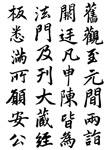 舊觀至元間兩詣
闕廷凡申陳皆為
法門及刊大藏經
板悉滿所願安公